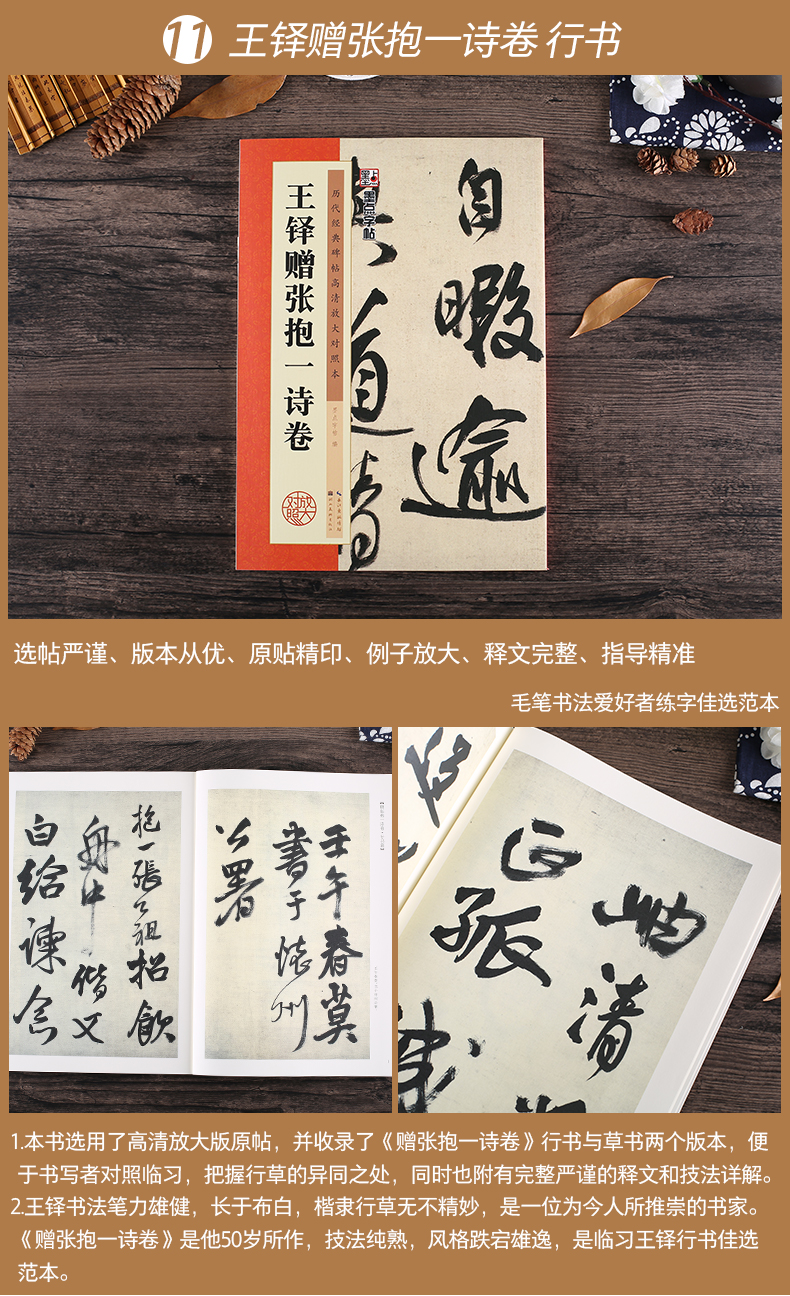 11 王铎赠张抱一诗卷 行书
历代经典碑帖高清放大对照本
王铎赠张抱一诗卷
墨点字帖
放大对照
自
暇
逾
道
清
选帖严谨、版本从优、原贴精印、例子放大、释文完整、指导精准
毛笔书法爱好者练字佳选范本
抱一張公祖招飲
舟中偕又
白給諫念
壬午春莫
書于懷州
公署
岫清
正孤
1.本书选用了高清放大版原帖，并收录了《赠张抱一诗卷》行书与草书两个版本，便
于书写者对照临习，把握行草的异同之处，同时也附有完整严谨的释文和技法详解。
2.王铎书法笔力雄健，长于布白，楷隶行草无不精妙，是一位为今人所推崇的书家。
《赠张抱一诗卷》是他50岁所作，技法纯熟，风格跌宕雄逸，是临习王铎行书佳选
范本。